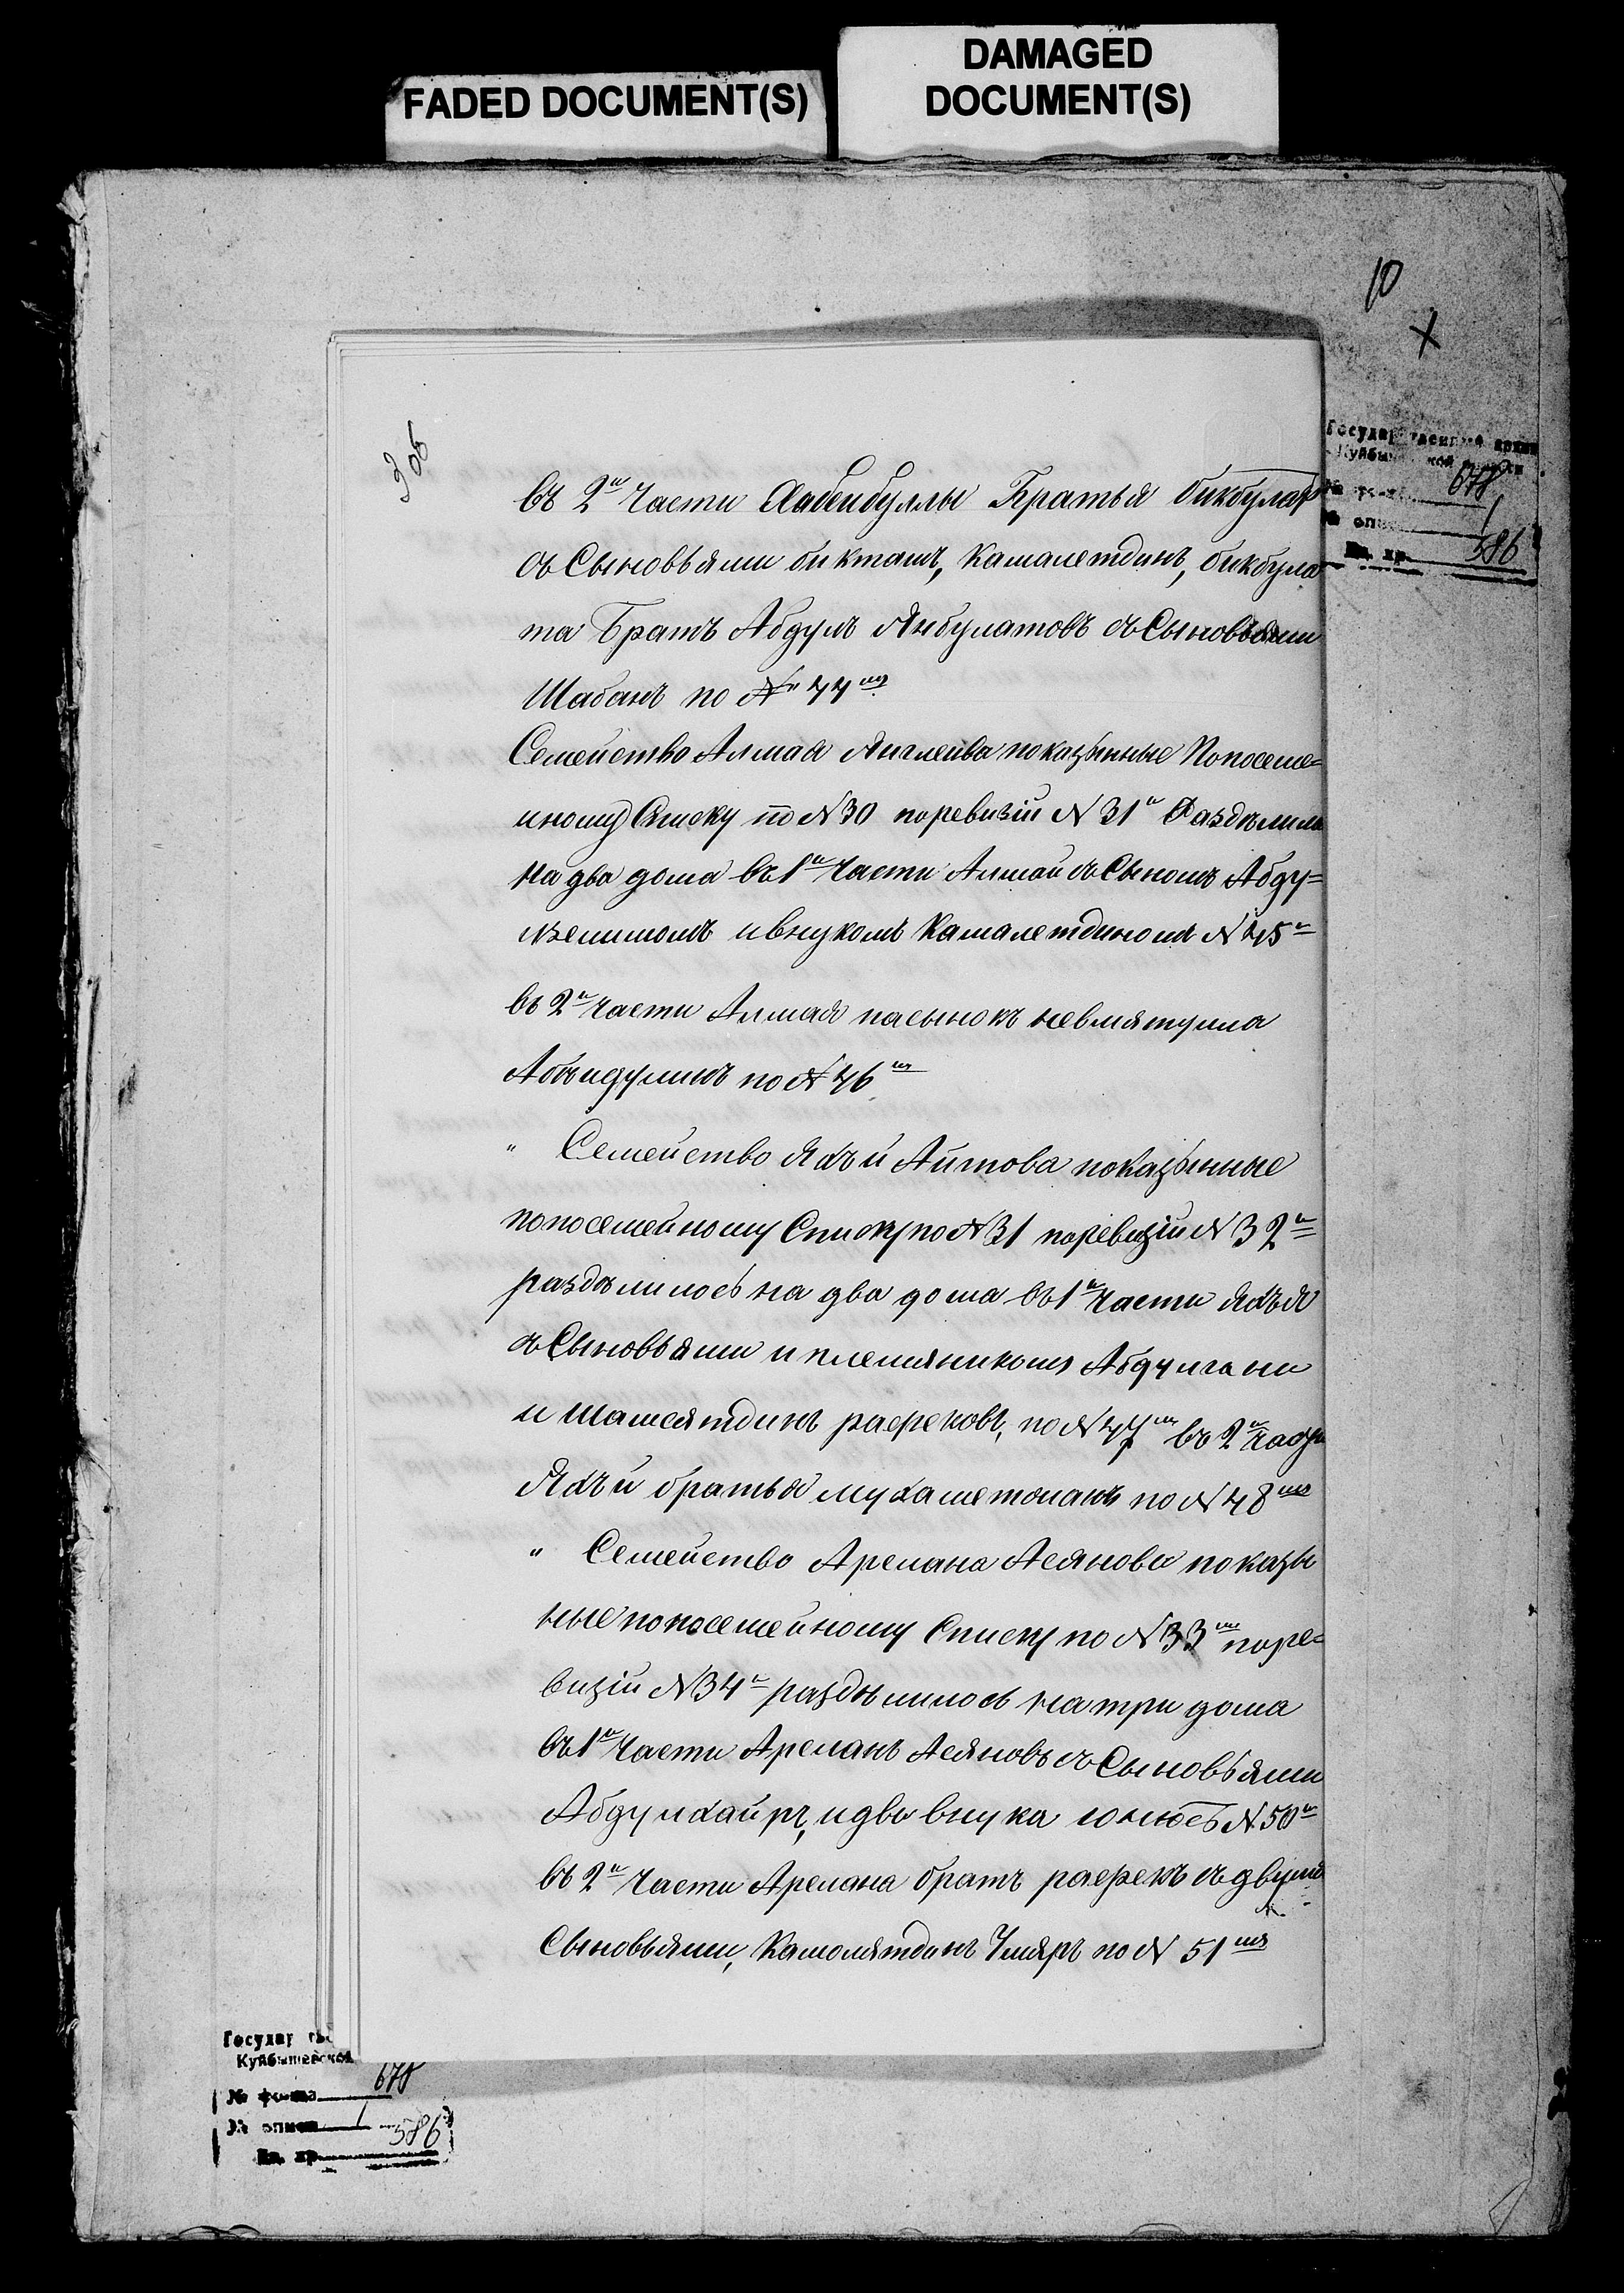 FADED DOCUMENT(S)
DAMAGED
DOCUMENT(S)
10
X
Государственный архив
Куйбышевской области
№ фонда 678
№ описи 1
Ед. хр. 586
въ 2й Части Хабейбуллы Братья бикбулат
съ Сыновьями бикташъ, Камалетдинъ, бикбула
та Братъ Абдулъ Янбулатовъ съ Сыновьями
Шабанъ по № 44мъ
Семейство Алмая Янглеива показынные Попосеме=
иному Списку по №30 поревизіи № 31й Раздѣлили
на два дома въ 1й Части Алмай съ Сыномъ Абду=
лзелимомъ и внукомъ Камалетдиномъ № 45й
въ 2й Части Алмая пасынокъ невмятулла
по № 46мъ
" Семейство Яхъи Аитова показынные
попосемейному Списку по № 31 поревизіи № 32й
раздѣлилось на два дома въ 1й Части Яхъя
съ Сыновьями и племяникомъ Абдулгани
и Шамсятдинъ расреховъ, по № 47мъ въ 2й Части
Яхъи братья мухаметжанъ по № 48мъ
" Семейство Арслана Асянова показы
ные попосемейному Списку по № 33мъ поре=
визіи № 34й раздѣлилось на три дома
въ 1й Части Арсланъ Асяновъ съ Сыновьями
Абдулхаиръ, и два внука юнюсъ № 50й
въ 2й Части Арслана братъ расрехъ съ двумя
Сыновьями, Камолятдинъ Умяръ по № 51мъ
Государ
Куйбышевской
№ фонда 678
№ описи 1
Ед. хр. 586